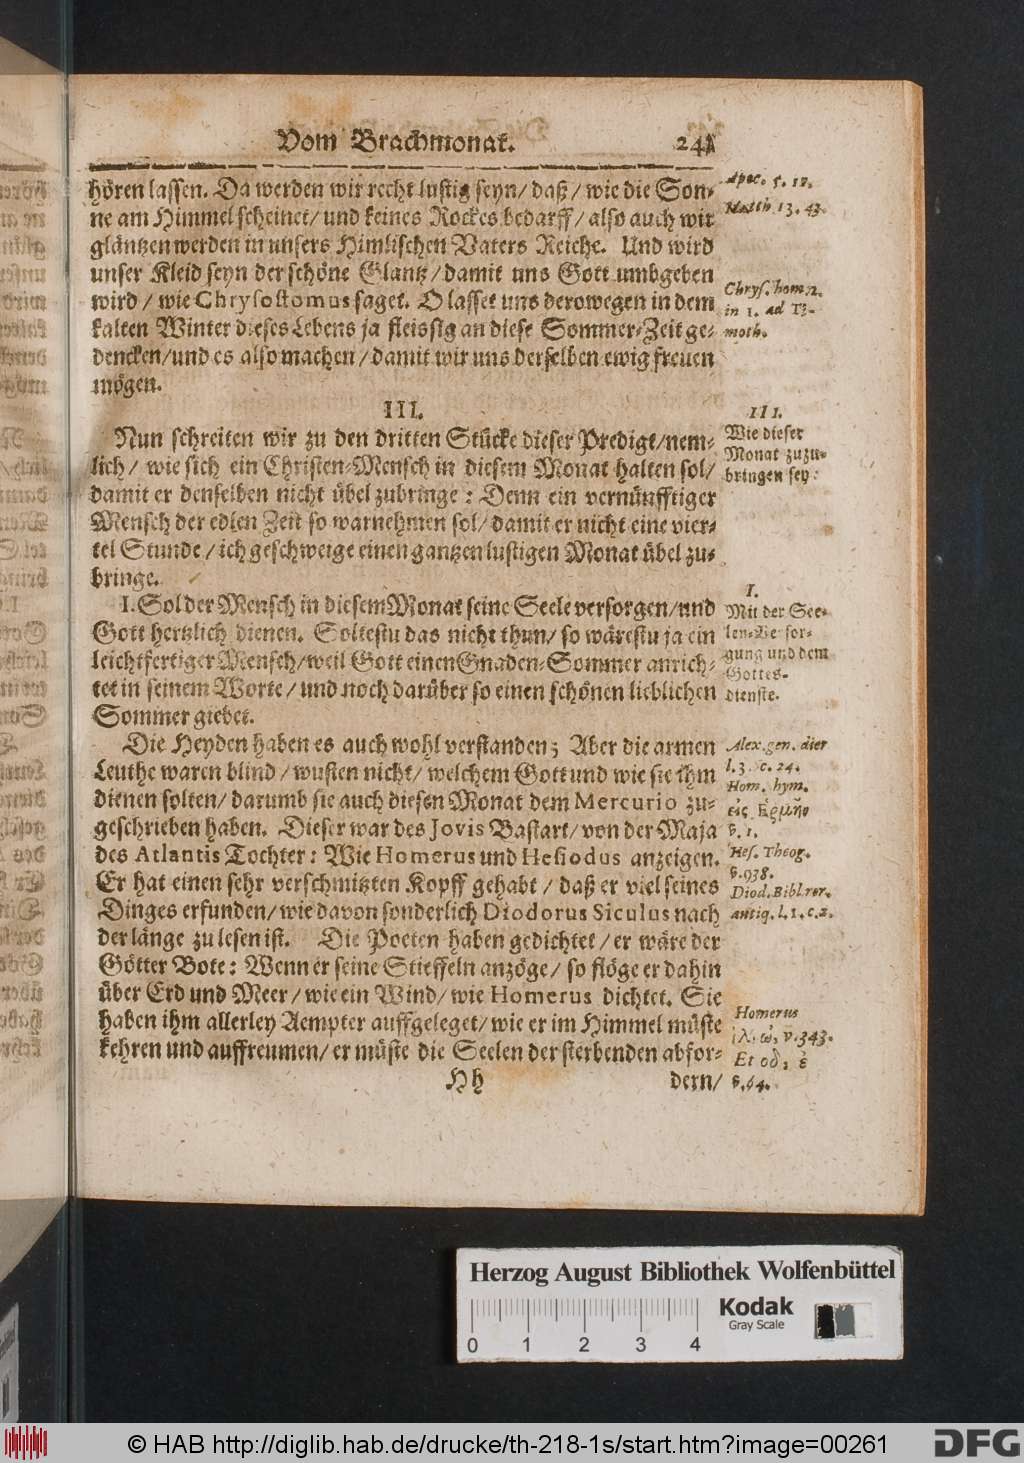 Vom Brachmonat. 241
hören lassen. Da werden wir recht lustig seyn/ daß/ wie die Son-
ne am Himmel scheinet/ und keines Rockes bedarff/ also auch wir
gläntzen werden in unsers Himlischen Vaters Reiche. Und wird
unser Kleid seyn der schöne Glantz/ damit uns Gott umbgeben
wird/ wie Chrysostomus saget. O lasset uns derowegen in dem
kalten Winter dieses Lebens ja fleissig an diese Sommer-Zeit ge-
dencken/ und es also machen/ damit wir uns derselben ewig freuen
mögen.
Apoc. 5. 12.
Matth. 13. 43.
Chrys. hom. 2.
in 1. ad Ti-
moth.
III.
Nun schreiten wir zu den dritten Stücke dieser Predigt/ nem-
lich/ wie sich ein Christen-Mensch in diesem Monat halten sol/
damit er denselben nicht übel zubringe: Denn ein vernünfftiger
Mensch der edlen Zeit so warnehmen sol/ damit er nicht eine vier-
tel Stunde/ ich geschweige einen gantzen lustigen Monat übel zu-
bringe.
III.
Wie dieser
Monat zuzu-
bringen sey:
1. Sol der Mensch in diesem Monat seine Seele versorgen/ und
Gott hertzlich dienen. Soltestu das nicht thun/ so wärestu ja ein
leichtfertiger Mensch/ weil Gott einen Gnaden-Sommer anrich-
tet in seinem Worte/ und noch darüber so einen schönen lieblichen
Sommer giebet.
1.
Mit der See-
len-Versor-
gung und dem
Gottes-
dienste.
Die Heyden haben es auch wohl verstanden; Aber die armen
Leuthe waren blind/ wusten nicht/ welchem Gott und wie sie ihm
dienen solten/ darumb sie auch diesen Monat dem Mercurio zu-
geschrieben haben. Dieser war des Jovis Bastart/ von der Maja
des Atlantis Tochter: Wie Homerus und Hesiodus anzeigen.
Er hat einen sehr verschmitzten Kopff gehabt/ daß er viel seines
Dinges erfunden/ wie davon sonderlich Diodorus Siculus nach
der länge zu lesen ist. Die Poeten haben gedichtet/ er wäre der
Götter Bote: Wenn er seine Stieffeln anzöge/ so flöge er dahin
über Erd und Meer/ wie ein Wind/ wie Homerus dichtet. Sie
haben ihm allerley Aempter auffgeleget/ wie er im Himmel müste
kehren und auffreumen/ er müste die Seelen der sterbenden abfor-
Alex. gen. dier
l. 3. c. 24.
Hom. hym.
εἰς Ἑρμῆν
v. 1.
Hes. Theog.
v. 938.
Diod. Bibl. rer.
antiq. l. 1. c. 2.
Homerus
ιλ. ω, v. 343.
Et οδ, ε
v. 64.
Hh dern/
Herzog August Bibliothek Wolfenbüttel
Kodak
Gray Scale
0 1 2 3 4
© HAB http://diglib.hab.de/drucke/th-218-1s/start.htm?image=00261
DFG